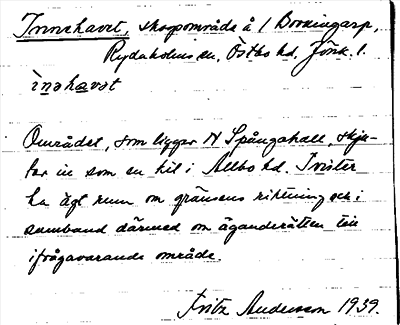 Innehavet, skogsområde å 1 Borringarp,
Rydaholms sn, Östbo hd, Jönk. l.
ìnəhavət
Området, som ligger N Spångahall, skju-
ter in som en kil i Allbo hd. Tvister
ha ägt rum om gränsens riktning och i
samband därmed om äganderätten till
ifrågavarande område.
Fritz Andersson 1939.